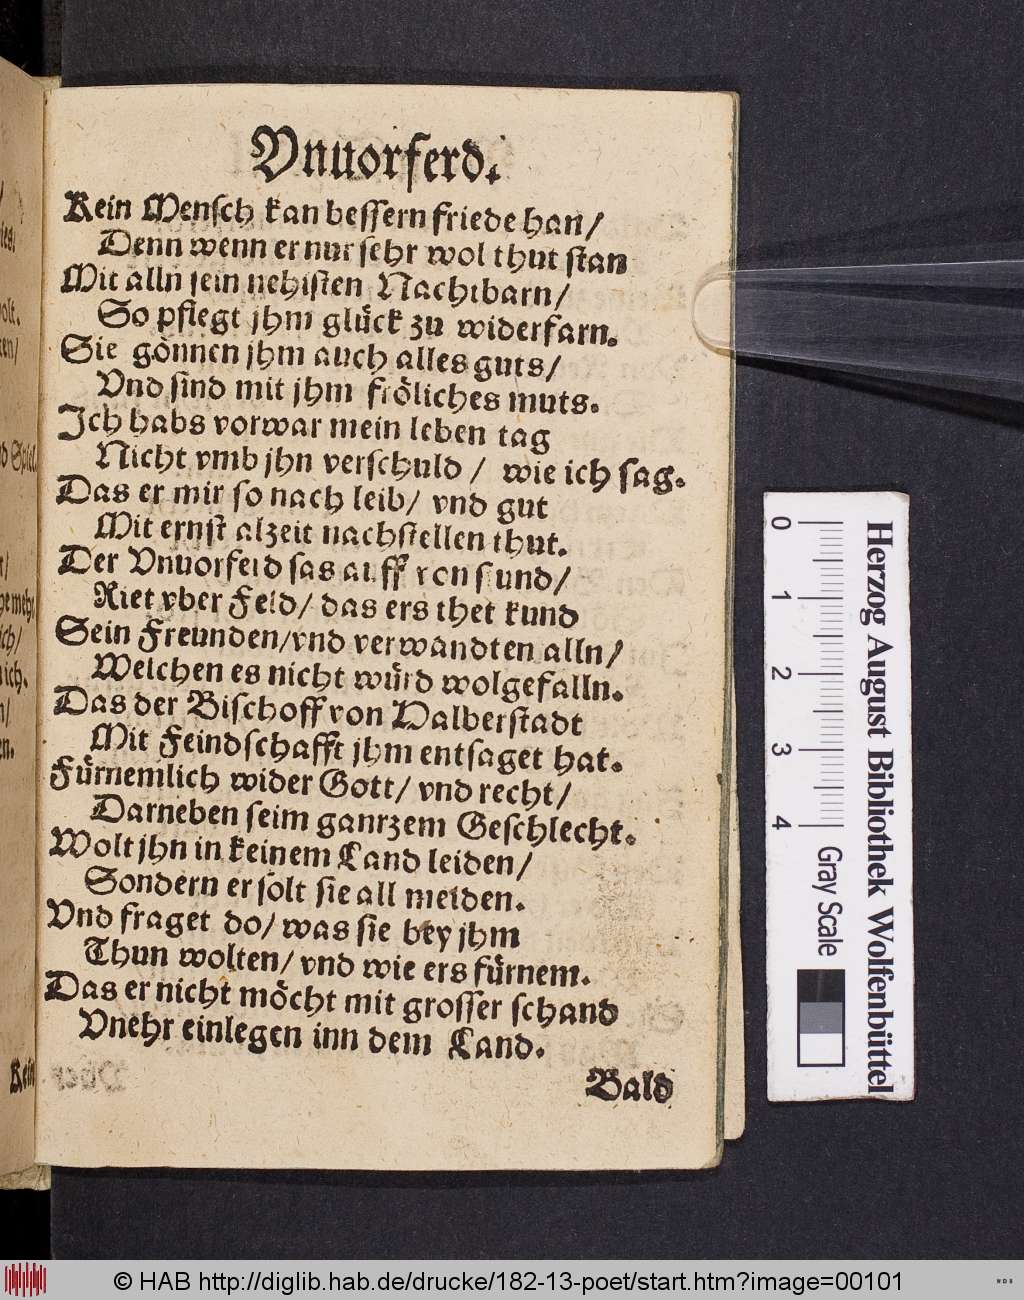 Vnuorferd.
Kein Mensch kan bessern friede han/
Denn wenn er nur sehr wol thut stan
Mit alln sein nehisten Nachtbarn/
So pflegt jhm glück zu widerfarn.
Sie gönnen jhm auch alles guts/
Vnd sind mit jhm fröliches muts.
Ich habs vorwar mein leben tag
Nicht vmb jhn verschuld / wie ich sag.
Das er mir so nach leib/ vnd gut
Mit ernst alzeit nachstellen thut.
Der Vnuorferd sas auff von stund/
Riet vber Feld/ das ers thet kund
Sein Freunden/vnd verwandten alln/
Welchen es nicht würd wolgefalln.
Das der Bischoff von Halberstadt
Mit Feindschafft jhm entsaget hat.
Fürnemlich wider Gott/ vnd recht/
Darneben seim ganrzem Geschlecht.
Wolt jhn in keinem Land leiden/
Sondern er solt sie all meiden.
Vnd fraget do/ was sie bey jhm
Thun wolten/ vnd wie ers fürnem.
Das er nicht möcht mit grosser schand
Vnehr einlegen inn dem Land.
Bald
Kein
0 1 2 3 4
Gray Scale
Herzog August Bibliothek Wolfenbüttel
© HAB http://diglib.hab.de/drucke/182-13-poet/start.htm?image=00101